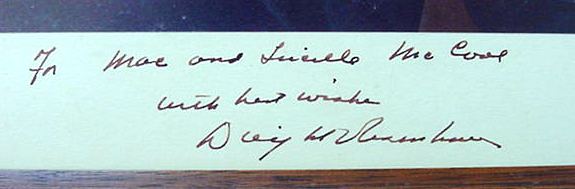 For Mac and Lucille McCool
with best wishes
Dwight D Eisenhower